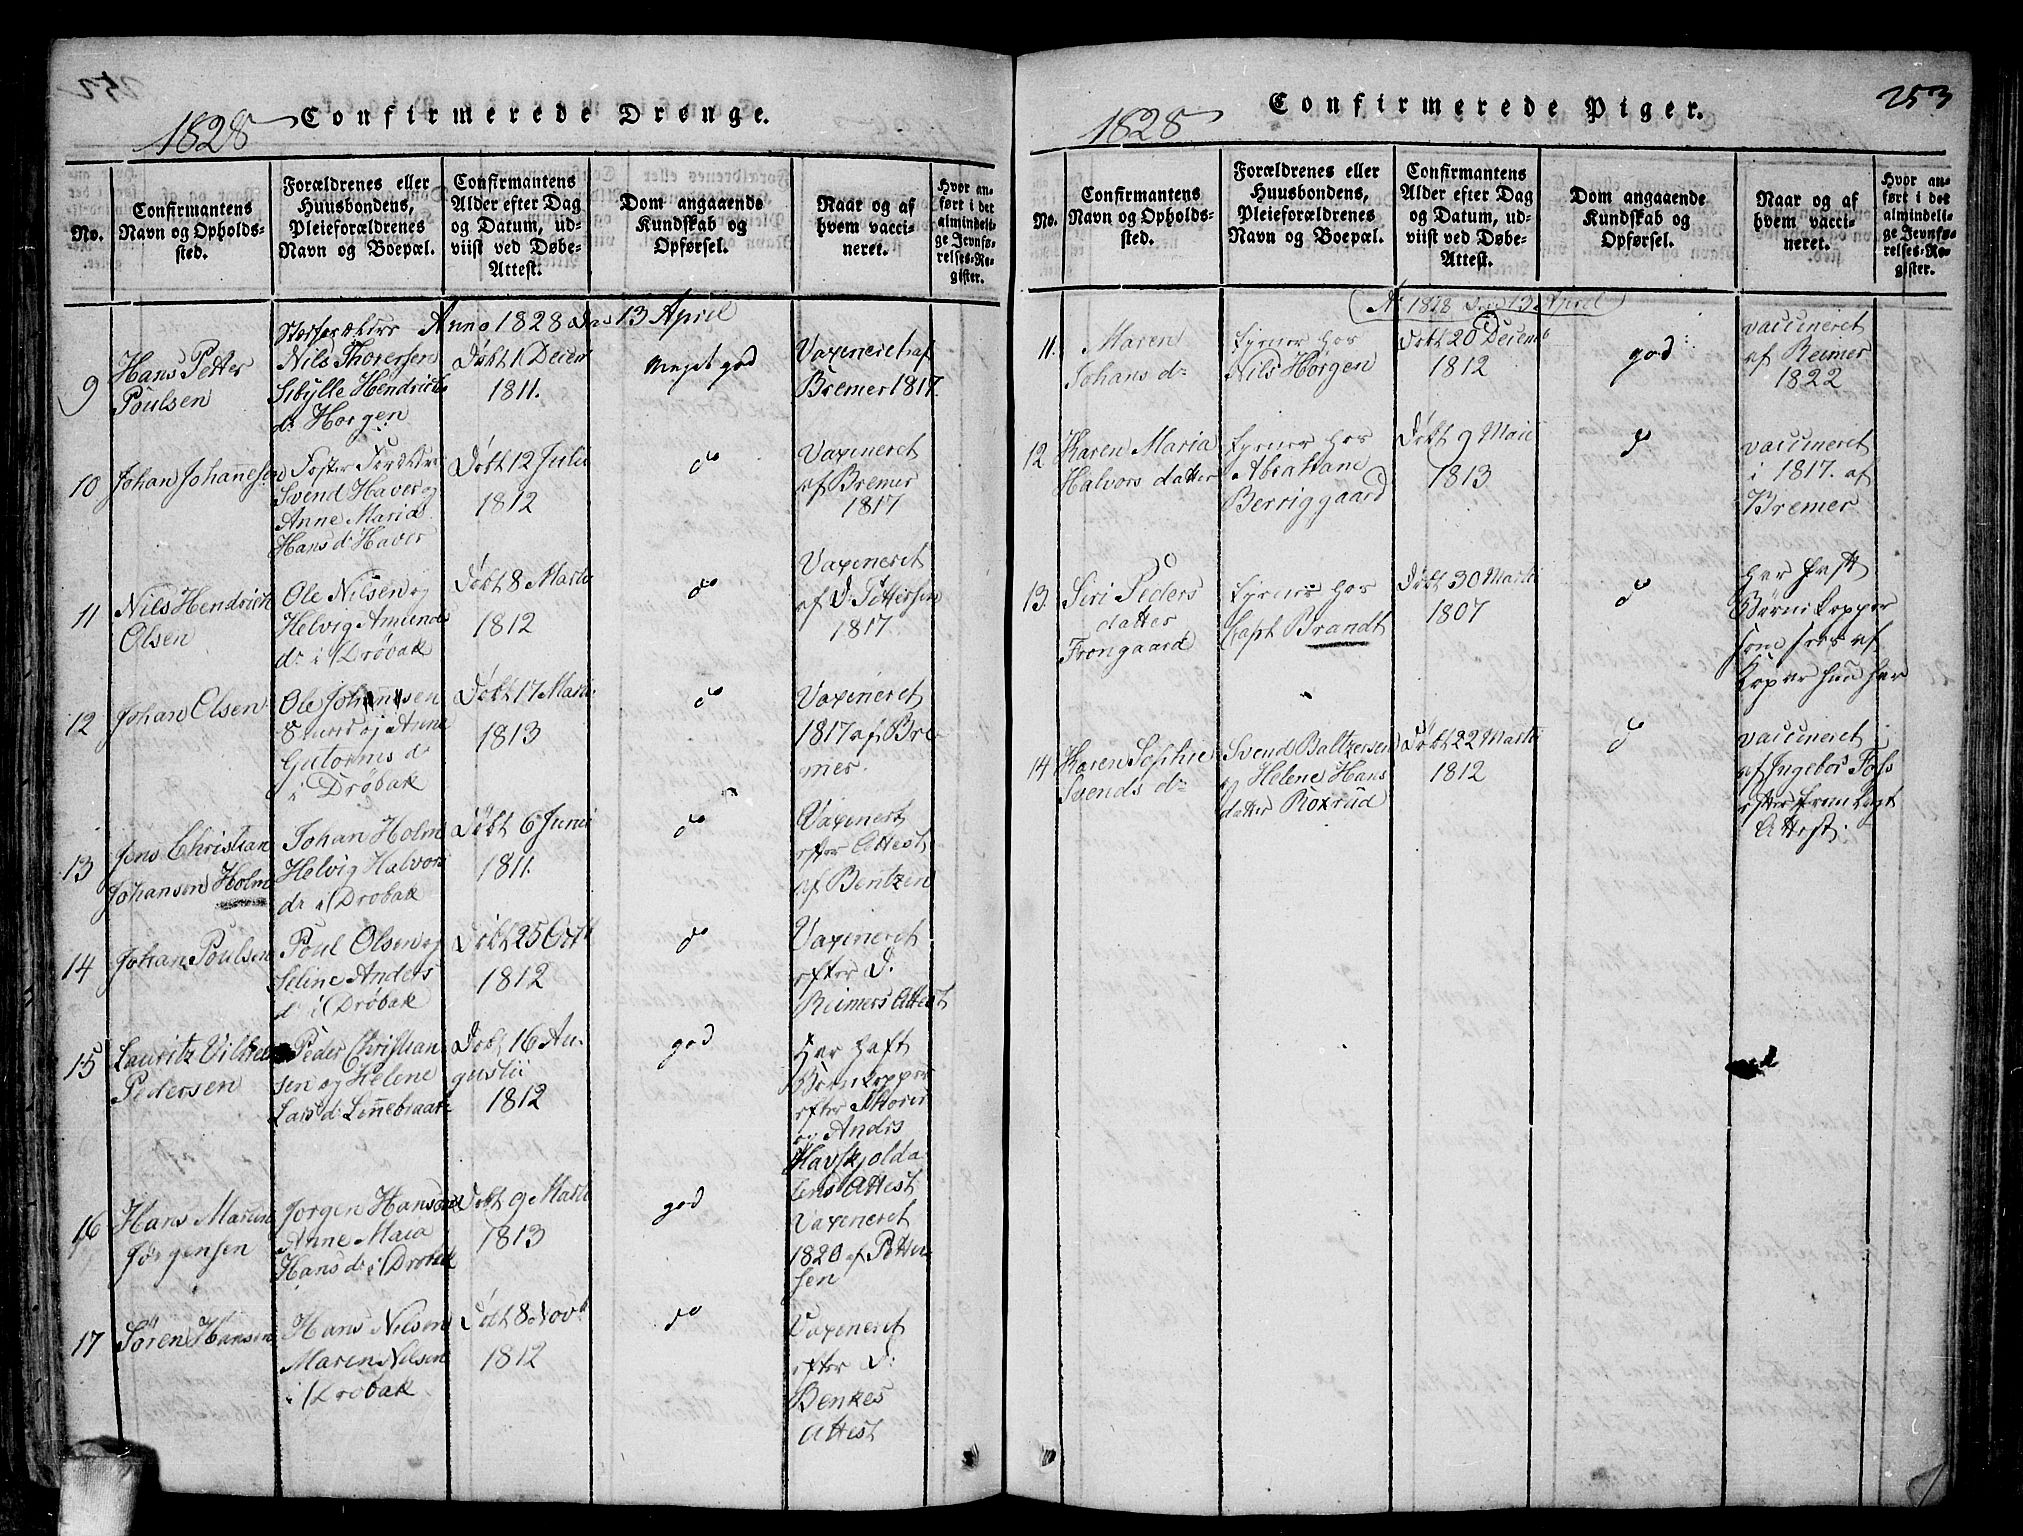 1828 Confirmerede Drenge.
No.
Confirmantens
Navn og Opholds-
sted.
Forældrenes eller
Huusbondens,
Pleieforældrenes
Navn og Boepæl.
Confirmantens
Alder efter Dag
og Datum, ud-
viist ved Døbe-
Attest.
Dom angaaende
Kundskab og
Opførsel.
Naar og af
hvem vacci-
neret.
Hvor an-
ført i det
almindeli-
ge Jevnfø-
relses-Re-
gister.
Anno 1828 den 13 April
9
Hans Petter
Poulsen
Nils Thoresen
Sibylle Hendrichs
d: Horgen
Døbt 1 Decem
1811.
meget god
Vaxineret af
Bremer 1817.
10
Johan Johanesen
Foster Forældre
Svend Haver og
Anne Maria
Hans d: Haver
Døbt 12 Julii
1812
do
Vaxineret
af Bremer
1817
11
Nils Hendrich
Olsen
Ole Nilsen og
Helvig Amunds
d: i Drøbak
Døbt 8 Martii
1812
do
Vaxineret
af D: Pettersen
1817
12
Johan Olsen
Ole Johannsen
og Anne
Gutorms d:
i Drøbak
Døbt 17 Martii
1813
do
Vaxineret
1817 af Bre-
mer.
13
Jens Christian
Johansen Holm
Johan Holm
Helvig Halvors
d: i Drøbak
Døbt 6 Junii
1811.
do
Vaxineret
efter Attest
af Bentzen
14
Johan Poulsen
Poul Olsen og
Seline Anders
d: i Drøbak
Døbt 25 Octb
1812
do
Vaxineret
efter D:
Reimers Attest
15
Lauritz Vilhelm
Pedersen
Peder Christian-
sen og Helene
Lars d: Lennebraaten
Døbt 16 Au-
gustii
1812
god
Har haft
Børnkopper
efter Thores
og Anders
Havskjolda
lens Attest
16
Hans Marius
Jørgensen
Jørgen Hansen
Anne Maria
Hans d: i Drøbak
Døbt 9 Martii
1813
god
Vaxineret
1820 af Petter-
sen
17
Søren Hansen
Hans Nilsen
Maren Nilsen
i Drøbak
Døbt 8 Novb
1812
do
Vaxineret
efter D:
Benkes
Attest
1828 Confirmerede Piger. 253
No.
Confirmantens
Navn og Opholds-
sted.
Forældrenes eller
Huusbondens,
Pleieforældrenes
Navn og Boepæl.
Confirmantens
Alder efter Dag
og Datum, ud-
viist ved Døbe-
Attest.
Dom angaaende
Kundskab og
Opførsel.
Naar og af
hvem vacci-
neret.
Hvor an-
ført i det
almindeli-
ge Jevnfø-
relses-Re-
gister.
Ao 1828 den 13 April
11.
Maren
Johans d:
tjener hos
Nils Hørgen
Døbt 20 Decemb
1812
god
vaccineret
af Reimer
1822
12
Karen Maria
Halvors datter
tjener hos
Berriggaard
Døbt 9 Maii
1813
do
vaccineret
i 1817. af
Bremer
13.
Siri Peders
datter
Frongaard
tjener hos
Capt Brandt
Døbt 30 Martii
1807
do
har haft
Børnekopper
som sees af
Kopar hun har
14
Karen Sophie
Svends d:
Svend Baltzersen
og Helene Hans
datter Roxrud
Døbt 22 Martii
1812
do
vaccineret
af Ingebor Foss
efter fremlagt
Attest.